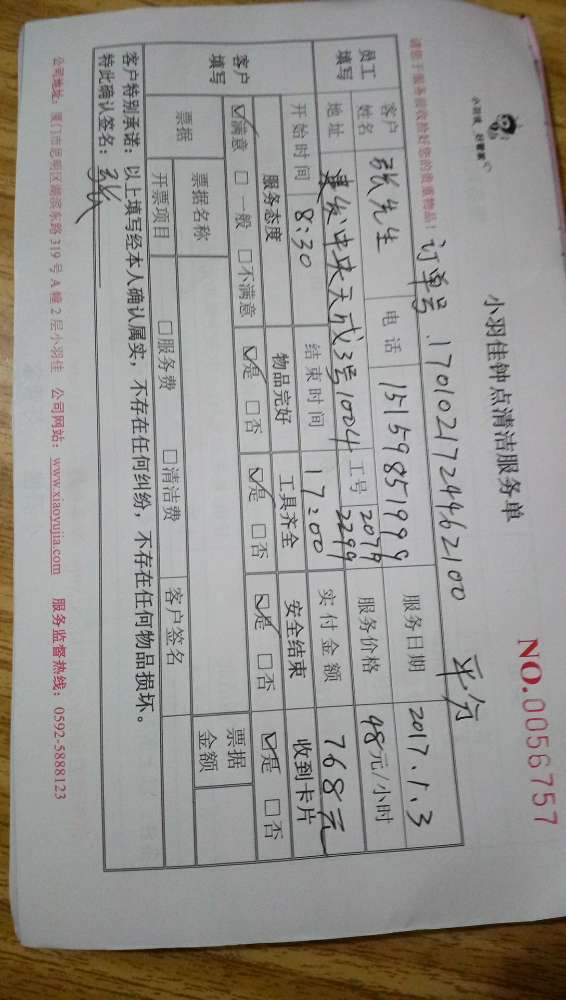 小羽佳 好管家
小羽佳钟点清洁服务单
NO.0056757
请您于服务前收拾好您的贵重物品!
订单号.17010217244462100
平分
员工填写
客户姓名 张先生 电话 15159851999 服务日期 2017.1.3
地址 建发中央天成3号1004 工号 2079 2299 服务价格 48元/小时
开始时间 8:30 结束时间 17:00 实付金额 768元
客户填写
服务态度 物品完好 工具齐全 安全结束 收到卡片
☑满意 □一般 □不满意 ☑是 □否 ☑是 □否 ☑是 □否 ☑是 □否
票据 票据名称 票据金额
开票项目 □服务费 □清洁费 客户签名
客户特别承诺:以上填写经本人确认属实,不存在任何纠纷,不存在任何物品损坏。
特此确认签名:张
公司地址:厦门市思明区湖滨东路319号A幢2层小羽佳 公司网站:www.xiaoyujia.com 服务监督热线:0592-5888123